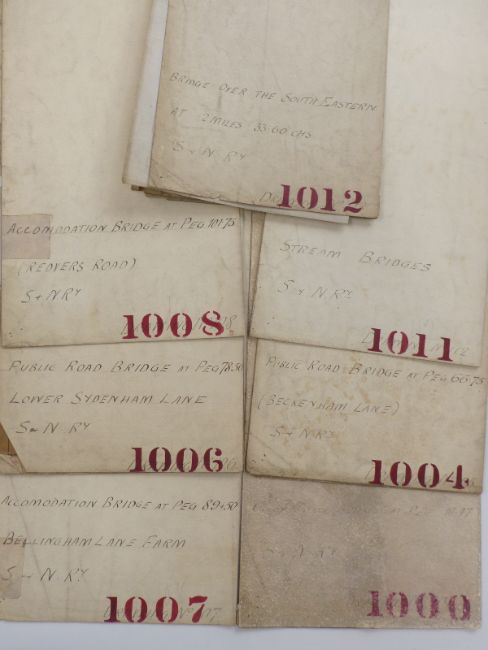 BRIDGE OVER THE SOUTH EASTERN
AT 2 MILES 33.60 CHS
S & N RY
1012
ACCOMODATION BRIDGE AT PEG 101.75
(REDVERS ROAD)
S & N RY
1008
STREAM BRIDGES
S & N. RY
1011
PUBLIC ROAD BRIDGE AT PEG 78.50
LOWER SYDENHAM LANE
S & N RY
1006
PUBLIC ROAD BRIDGE AT PEG 66.75
(BECKENHAM LANE)
S & N RY
1004
ACCOMODATION BRIDGE AT PEG 89.50
BELLINGHAM LANE FARM
S & N. RY
1007
1000